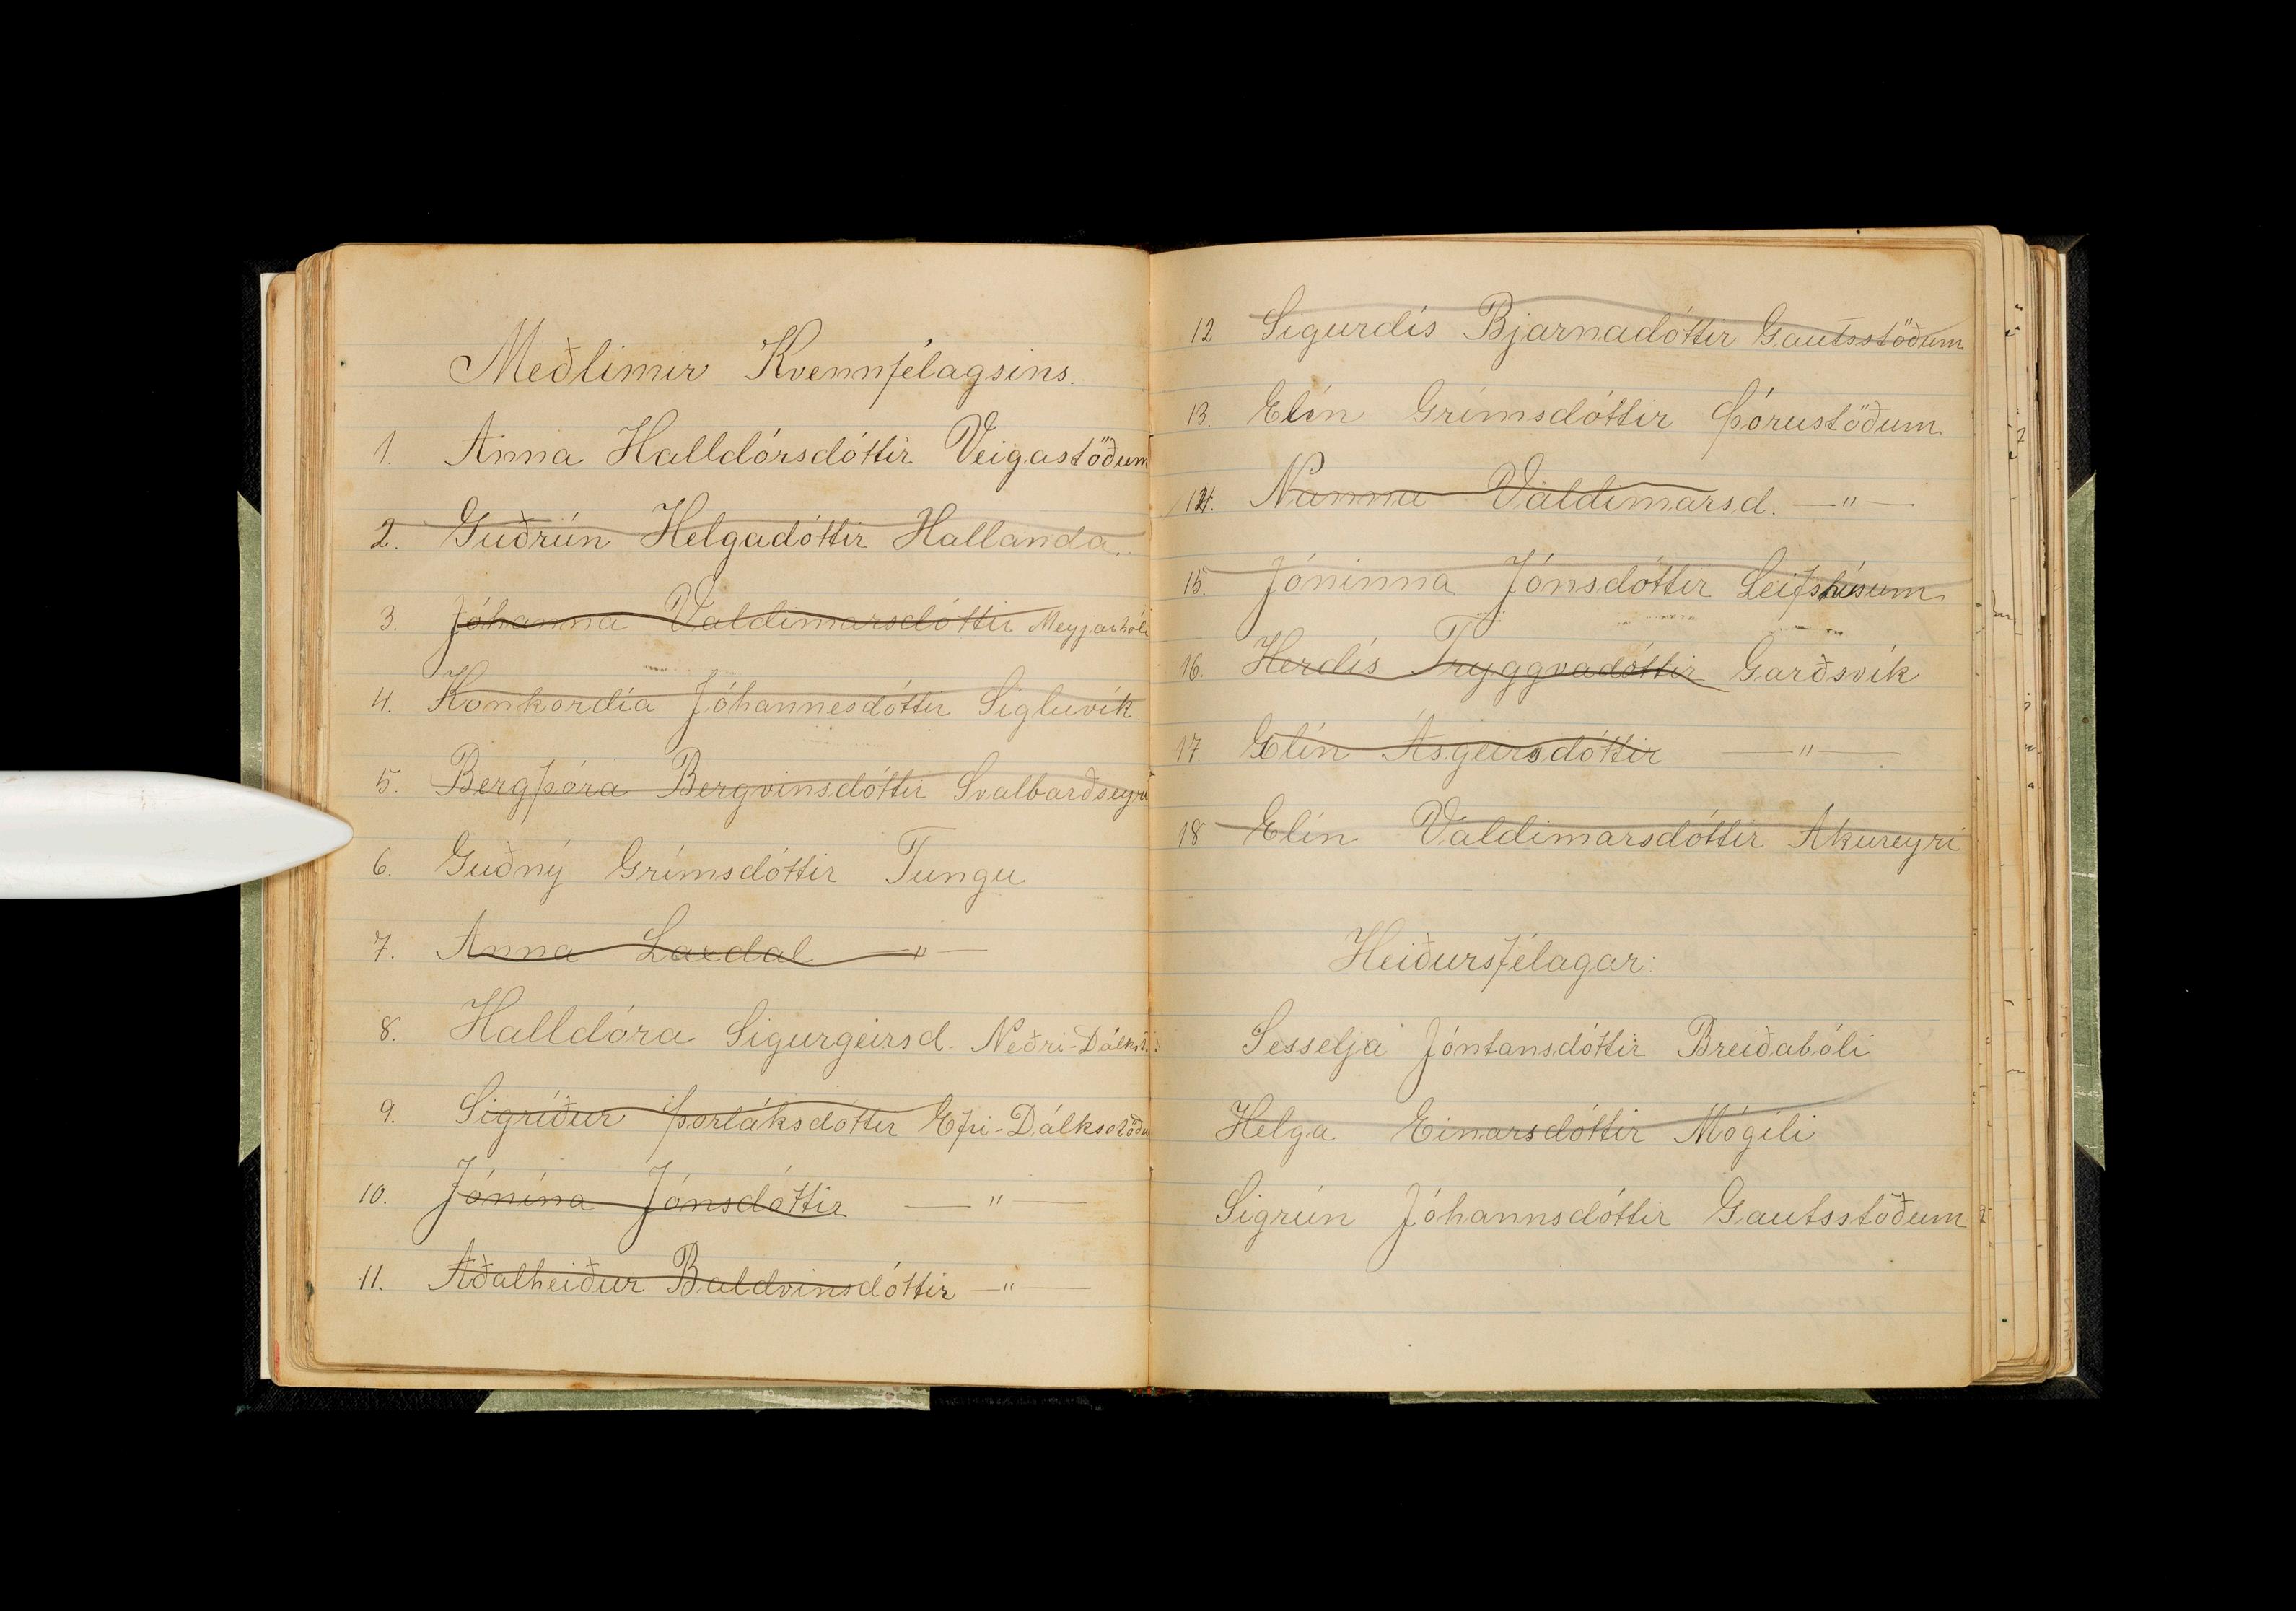 Meðlimir Kvennfélagsins.
1. Anna Halldórsdóttir Veigastöðum
2. Guðrún Helgadóttir Hallanda.
3. Jóhanna Valdimarsdóttir Meyjarhóli
4. Konkordía Jóhannesdóttir Sigluvík
5. Bergþóra Bergvinsdóttir Svalbarðseyri
6. Guðný Grímsdóttir Tungu
7. Anna Laxdal —"—
8. Halldóra Sigurgeirsd. Neðri-Dálkst.
9. Sigríður Þorláksdóttir Efri-Dálksstöðum
10. Jónína Jónsdóttir —"—
11. Aðalheiður Baldvinsdóttir —"—
12 Sigurdís Bjarnadóttir Gautsstöðum
13. Elín Grímsdóttir Þórustöðum
14. Nanna Valdimarsd. —"—
15. Jóninna Jónsdóttir Leifshúsum
16. Herdís Tryggvadóttir Garðsvík
17. Elín Ásgeirsdóttir —"—
18 Elín Valdimarsdóttir Akureyri
Heiðursfélagar:
Sesselja Jóntansdóttir Breiðabóli
Helga Einarsdóttir Mógili
Sigrún Jóhannsdóttir Gautsstöðum